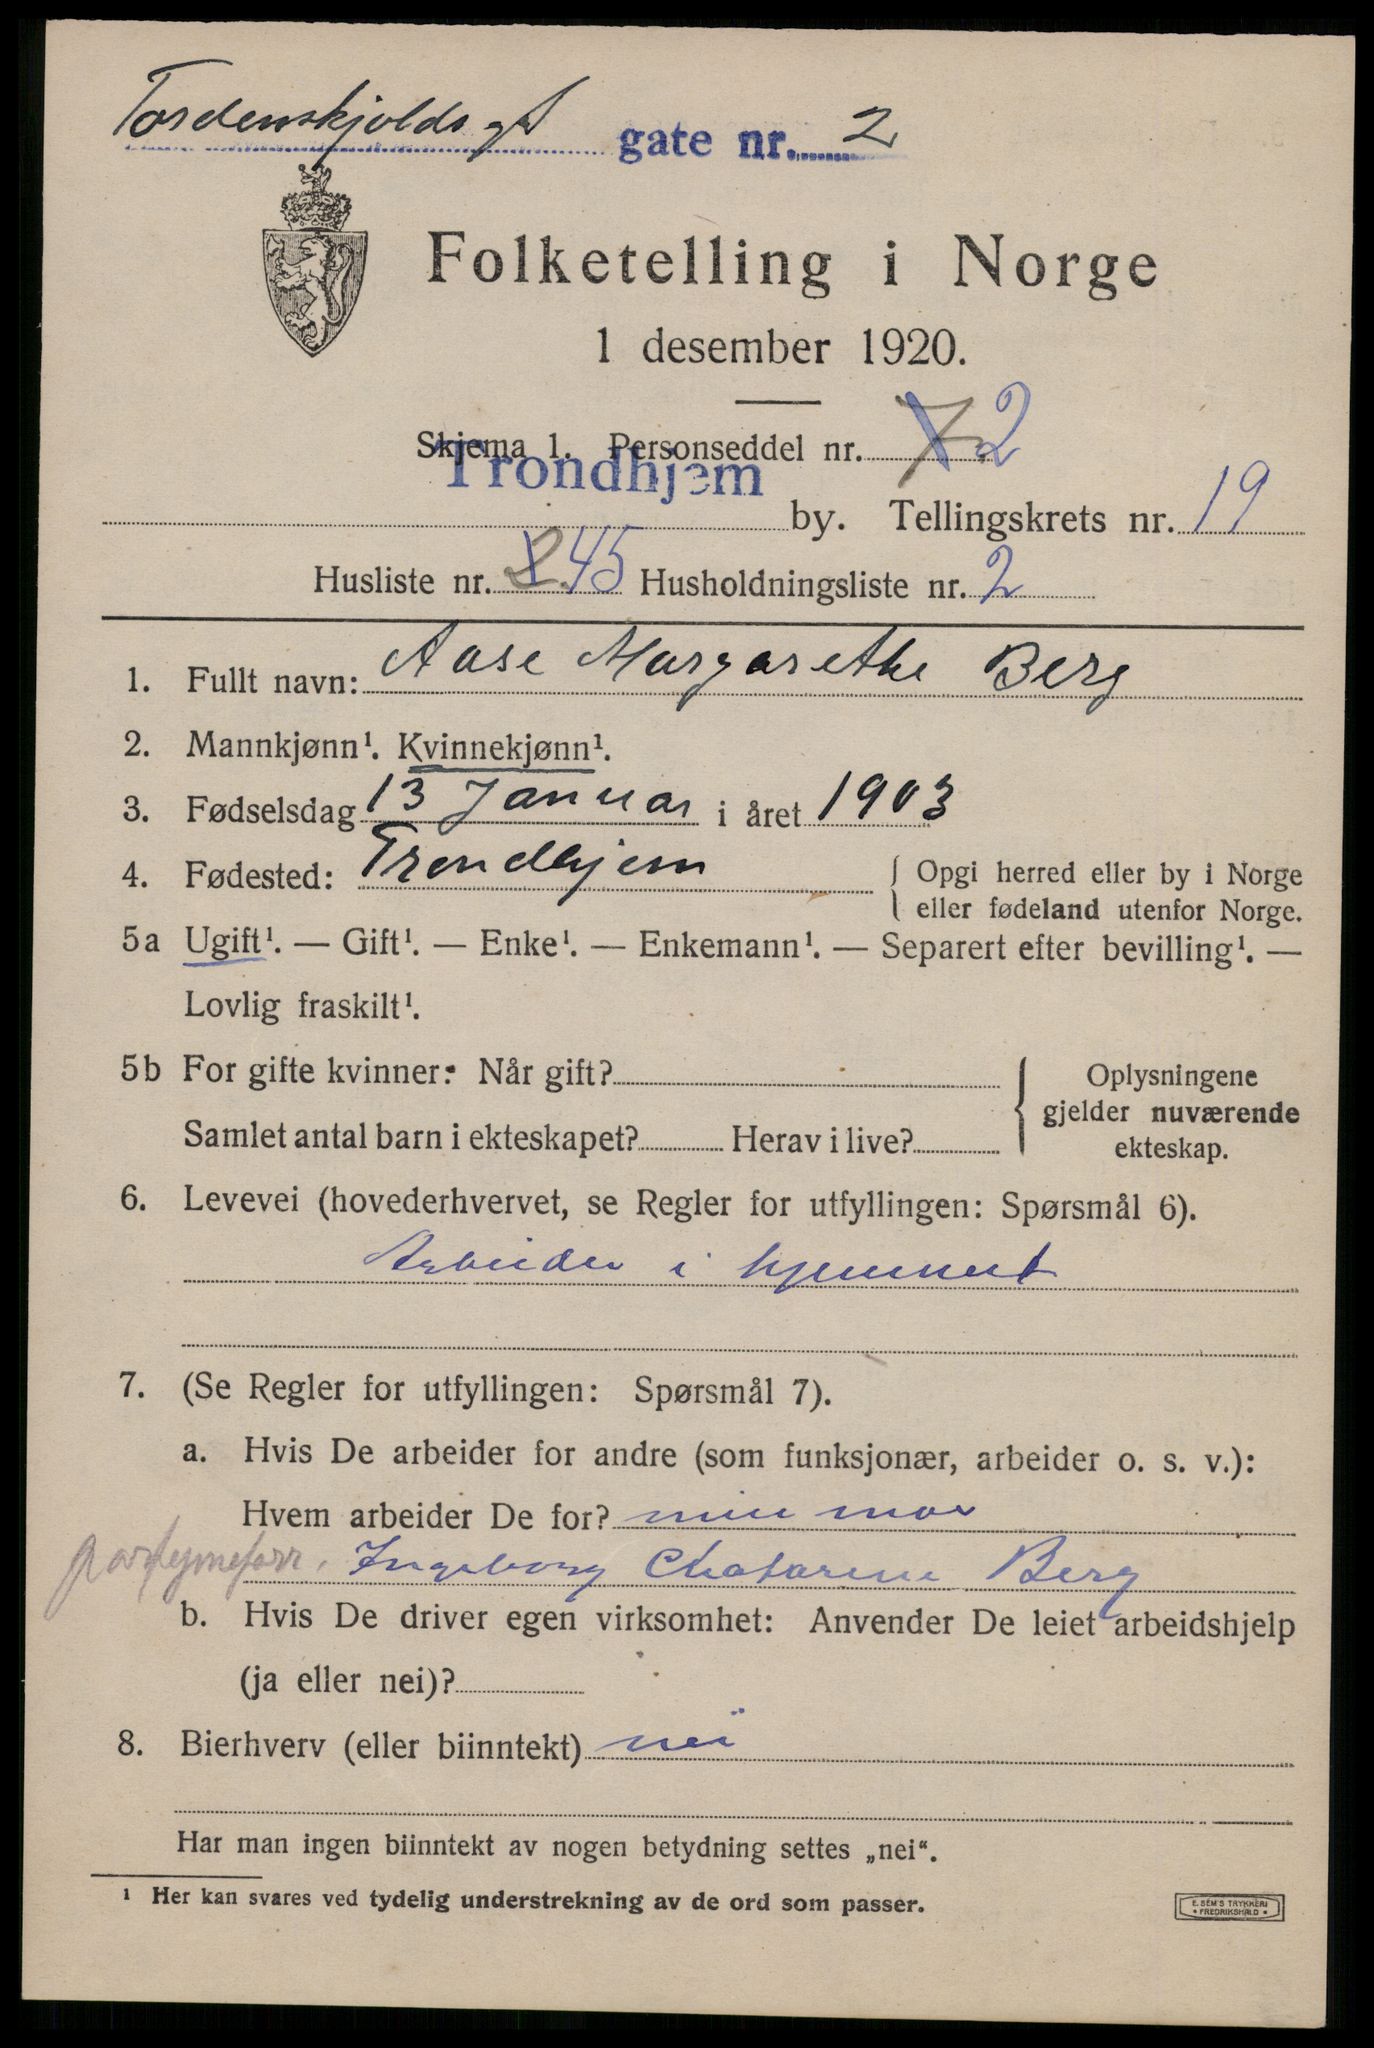 Tordenskjolds gt gate nr. 2
Folketelling i Norge
1 desember 1920.
Skjema 1. Personseddel nr. 7 2
Trondhjem by. Tellingskrets nr. 19
Husliste nr. 2 45 Husholdningsliste nr. 2
1. Fullt navn: Aase Margarethe Berg
2. Mannkjønn¹. Kvinnekjønn¹.
3. Fødselsdag 13 Januar i året 1903
4. Fødested: Trondhjem { Opgi herred eller by i Norge
eller fødeland utenfor Norge.
5a Ugift¹. — Gift¹. — Enke¹. — Enkemann¹. — Separert efter bevilling¹. —
Lovlig fraskilt¹.
5b For gifte kvinner: Når gift? Oplysningene
gjelder nuværende
Samlet antal barn i ekteskapet? Herav i live?
ekteskap.
6. Levevei (hovederhvervet, se Regler for utfyllingen: Spørsmål 6).
Arbeider i hjemmet
7. (Se Regler for utfyllingen: Spørsmål 7).
a. Hvis De arbeider for andre (som funksjonær, arbeider o. s. v.):
Hvem arbeider De for? min mor
Ingeborg Chatarine Berg
b. Hvis De driver egen virksomhet: Anvender De leiet arbeidshjelp
(ja eller nei)?
8. Bierhverv (eller biinntekt) nei
Har man ingen biinntekt av nogen betydning settes „nei“.
¹ Her kan svares ved tydelig understrekning av de ord som passer.
E. SEM'S TRYKKERI
• FREDRIKSHALD •